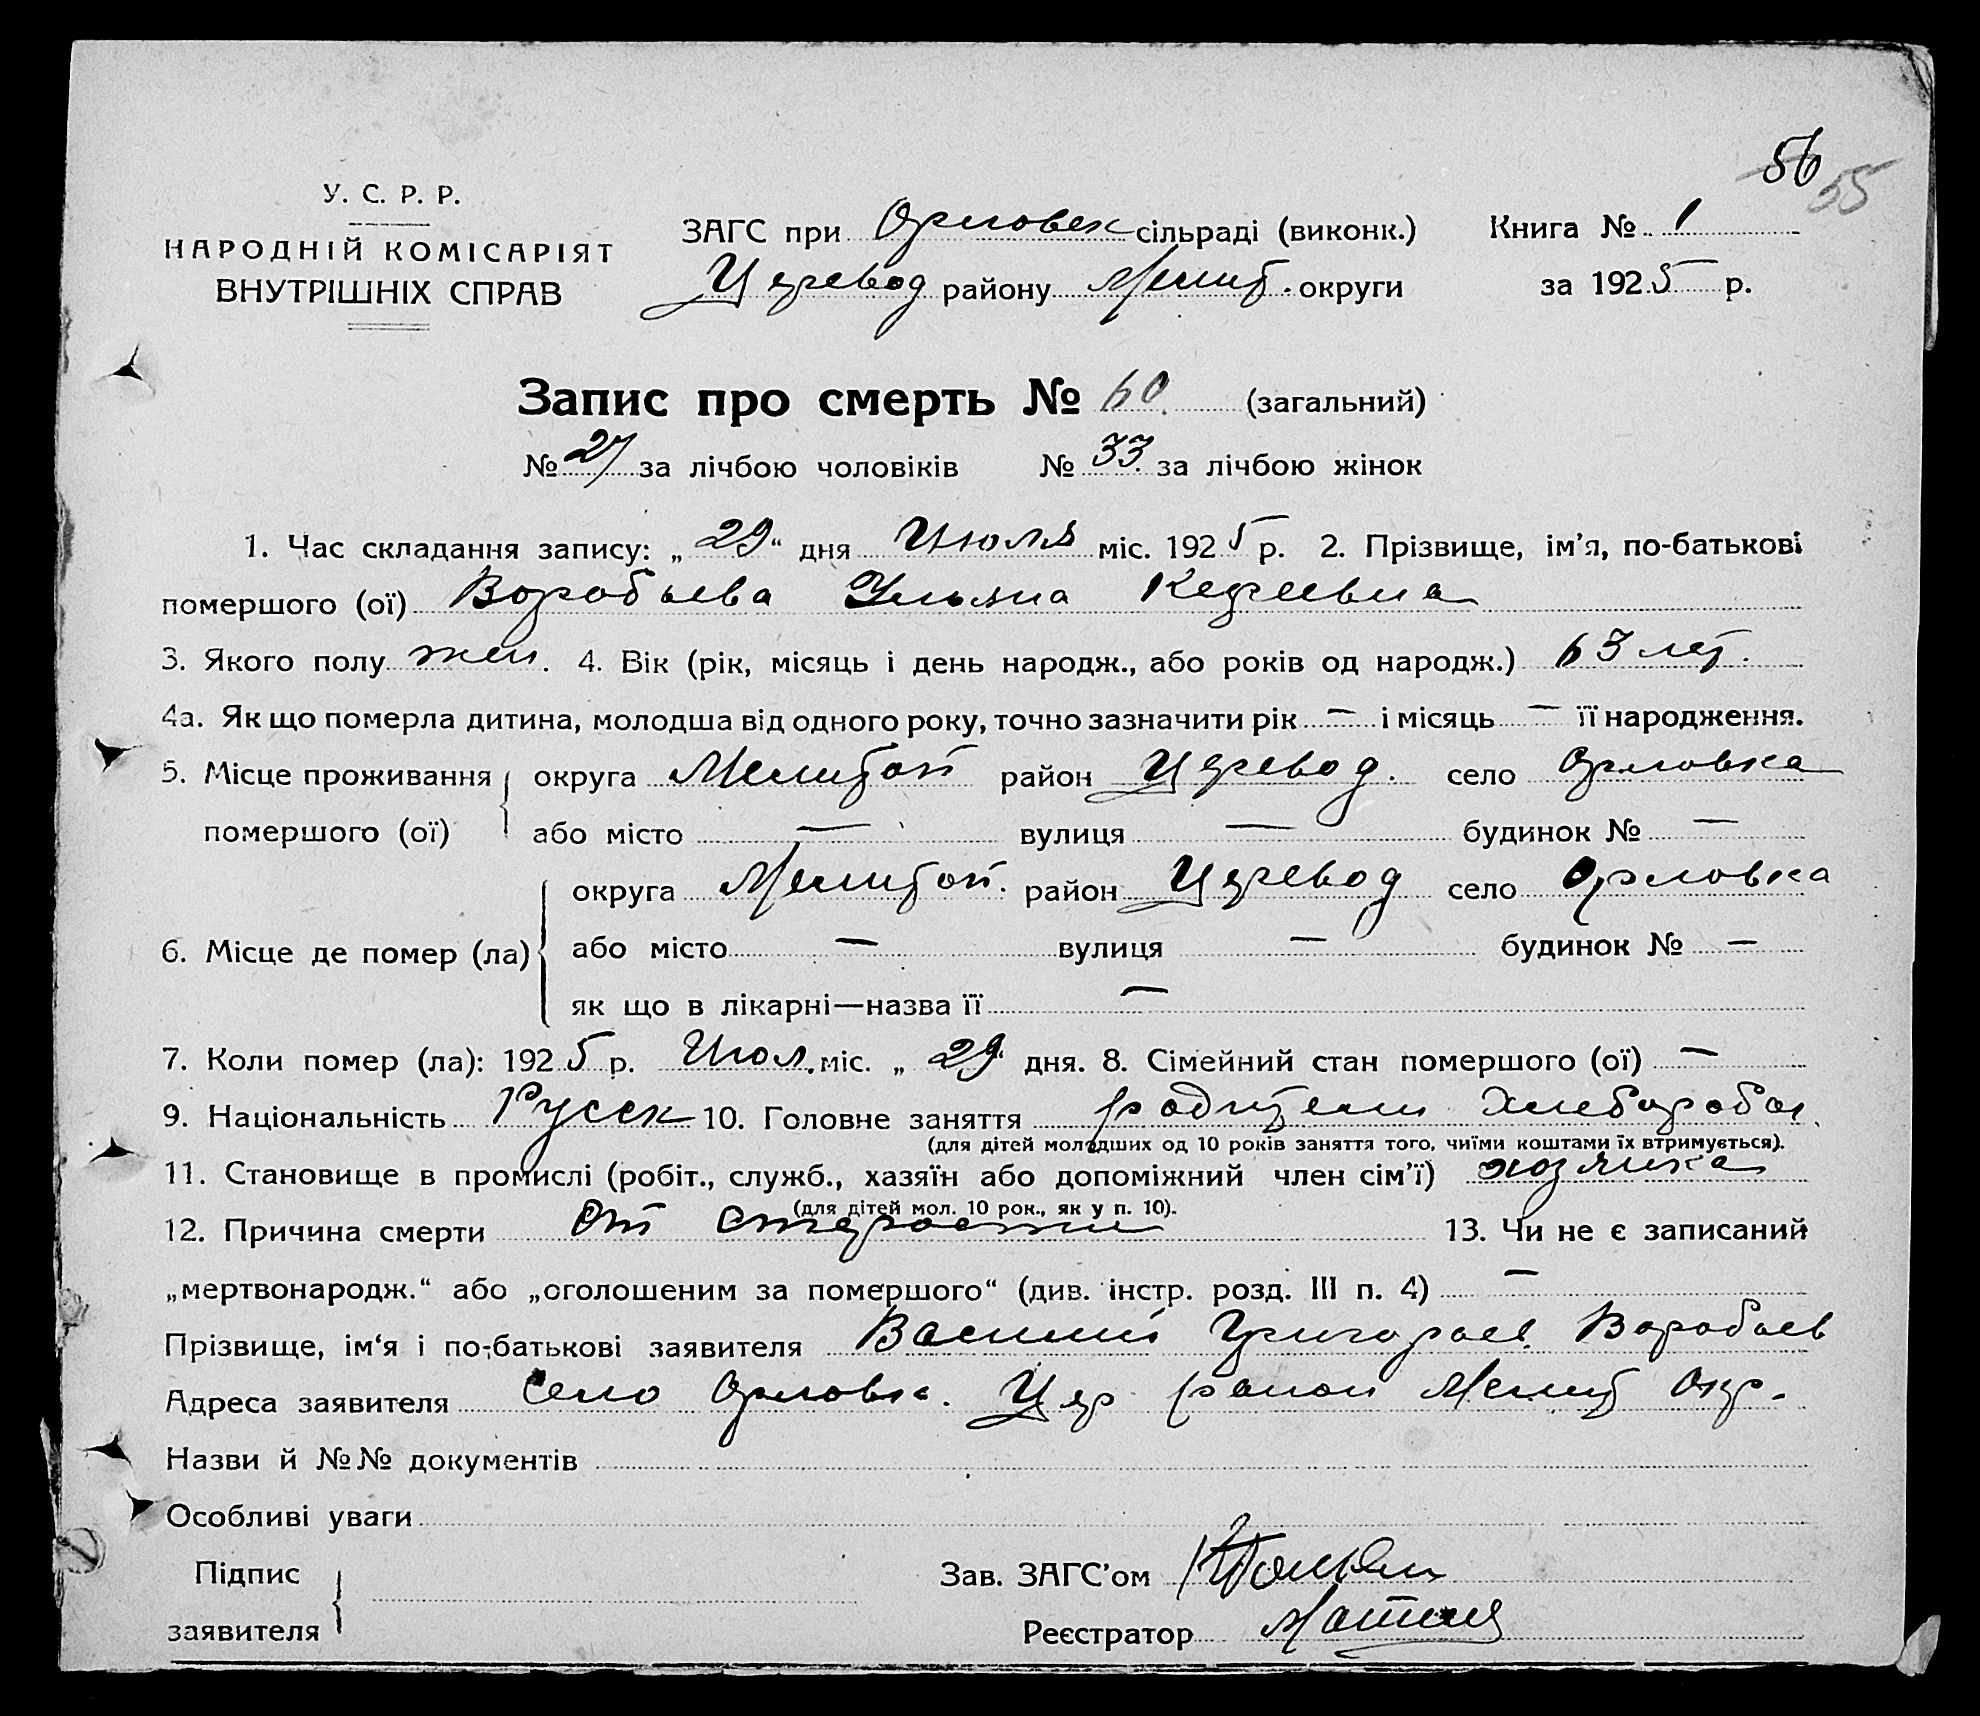 56 55
У. С. Р. Р.
НАРОДНІЙ КОМІСАРІЯТ
ВНУТРІШНІХ СПРАВ
ЗАГС при Орловск сільраді (виконк.) Книга № 1
Церевод району Мелит. округи за 1925 р.
Запис про смерть № 60 (загальний)
№ 27 за лічбою чоловіків № 33 за лічбою жінок
1. Час складання запису: „29“ дня Июля міс. 1925 р. 2. Прізвище, ім’я, по-батькові
помершого (ої) Воробьева Ульяна
3. Якого полу жен. 4. Вік (рік, місяць і день народж., або років од народж.) 63 лет.
4а. Як що померла дитина, молодша від одного року, точно зазначити рік — і місяць — її народження.
5. Місце проживання округа Мелитоп район Церевод. село Орловка
помершого (ої) або місто — вулиця — будинок № —
округа Мелитоп. район Церевод село Орловка
6. Місце де помер (ла) або місто — вулиця — будинок № —
як що в лікарні—назва її —
7. Коли помер (ла): 1925 р. Июл. міс. „29 дня. 8. Сімейний стан помершого (ої) —
9. Національність Русск 10. Головне заняття родители Хлебороб
(для дітей молодших од 10 років заняття того, чиїми коштами їх втримується).
11. Становище в промислі (робіт., служб., хазяїн або допоміжний член сім’ї) хозяика
(для дітей мол. 10 рок., як у п. 10).
12. Причина смерти От старости 13. Чи не є записаний
„мертвонародж.“ або „оголошеним за помершого“ (див. інстр. розд. III п. 4) —
Прізвище, ім‘я і по-батькові заявителя Василий Григорьев. Воробьев
Адреса заявителя село Орловк. Цер район Мелит Окр.
Назви й №№ документів
Особливі уваги
Підпис
заявителя
Зав. ЗАГС’ом
Реєстратор